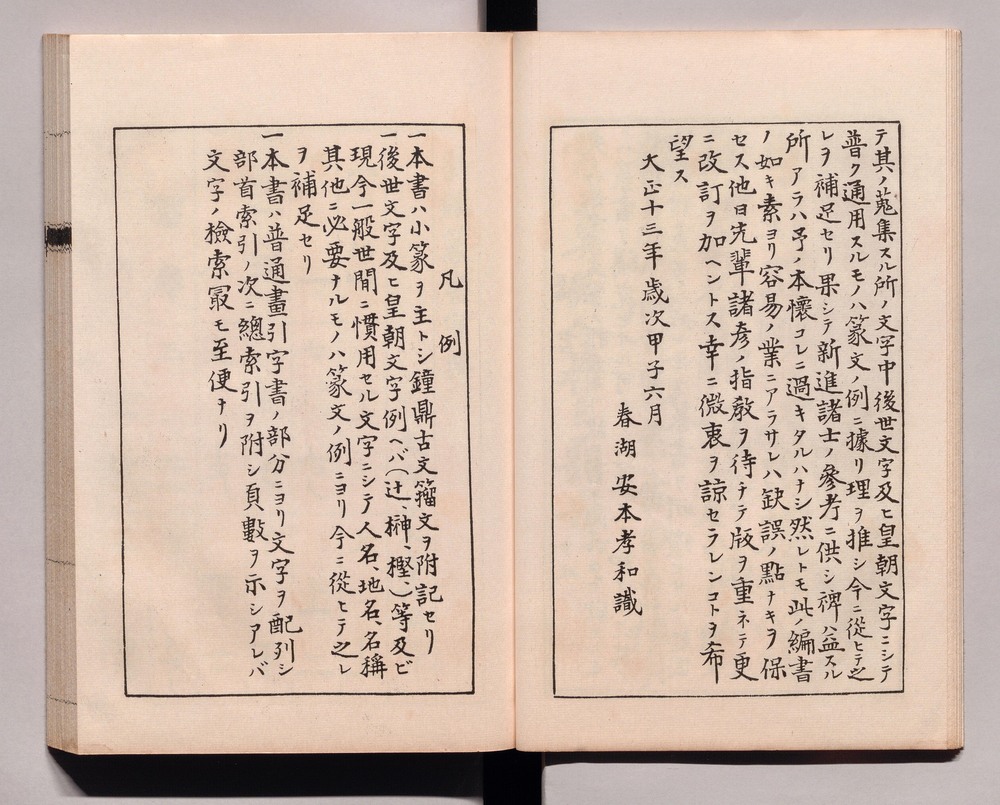 テ其ノ蒐集スル所ノ文字中後世文字及ヒ皇朝文字ニシテ
普ク通用スルモノハ篆文ノ例ニ據リ理ヲ推シ今ニ從ヒテ之
レヲ補足セリ果シテ新進諸士ノ參考ニ供シ裨益スル
所アラハ予ノ本懷コレニ過キタルハナシ然レトモ此ノ編書
ノ如キ素ヨリ容易ノ業ニアラサレハ缺誤ノ點ナキヲ保
セス他日先輩諸彦ノ指敎ヲ待チテ版ヲ重ネテ更
ニ改訂ヲ加ヘントス幸ニ微衷ヲ諒セラレンコトヲ希
望ス
大正十三年歳次甲子六月
春湖安本孝和識
凡例
一本書ハ小篆ヲ主トシ鐘鼎古文籀文ヲ附記セリ
一後世文字及ヒ皇朝文字例ヘバ(辻、榊、樫、)等及ビ
現今一般世間ニ慣用セル文字ニシテ人名、地名、名稱
其他ニ必要ナルモノハ篆文ノ例ニヨリ今ニ從ヒテ之レ
ヲ補足セリ
一本書ハ普通畫引字書ノ部分ニヨリ文字ヲ配列シ
部首索引ノ次ニ總索引ヲ附シ頁數ヲ示シアレバ
文字ノ檢索冣モ至便ナリ